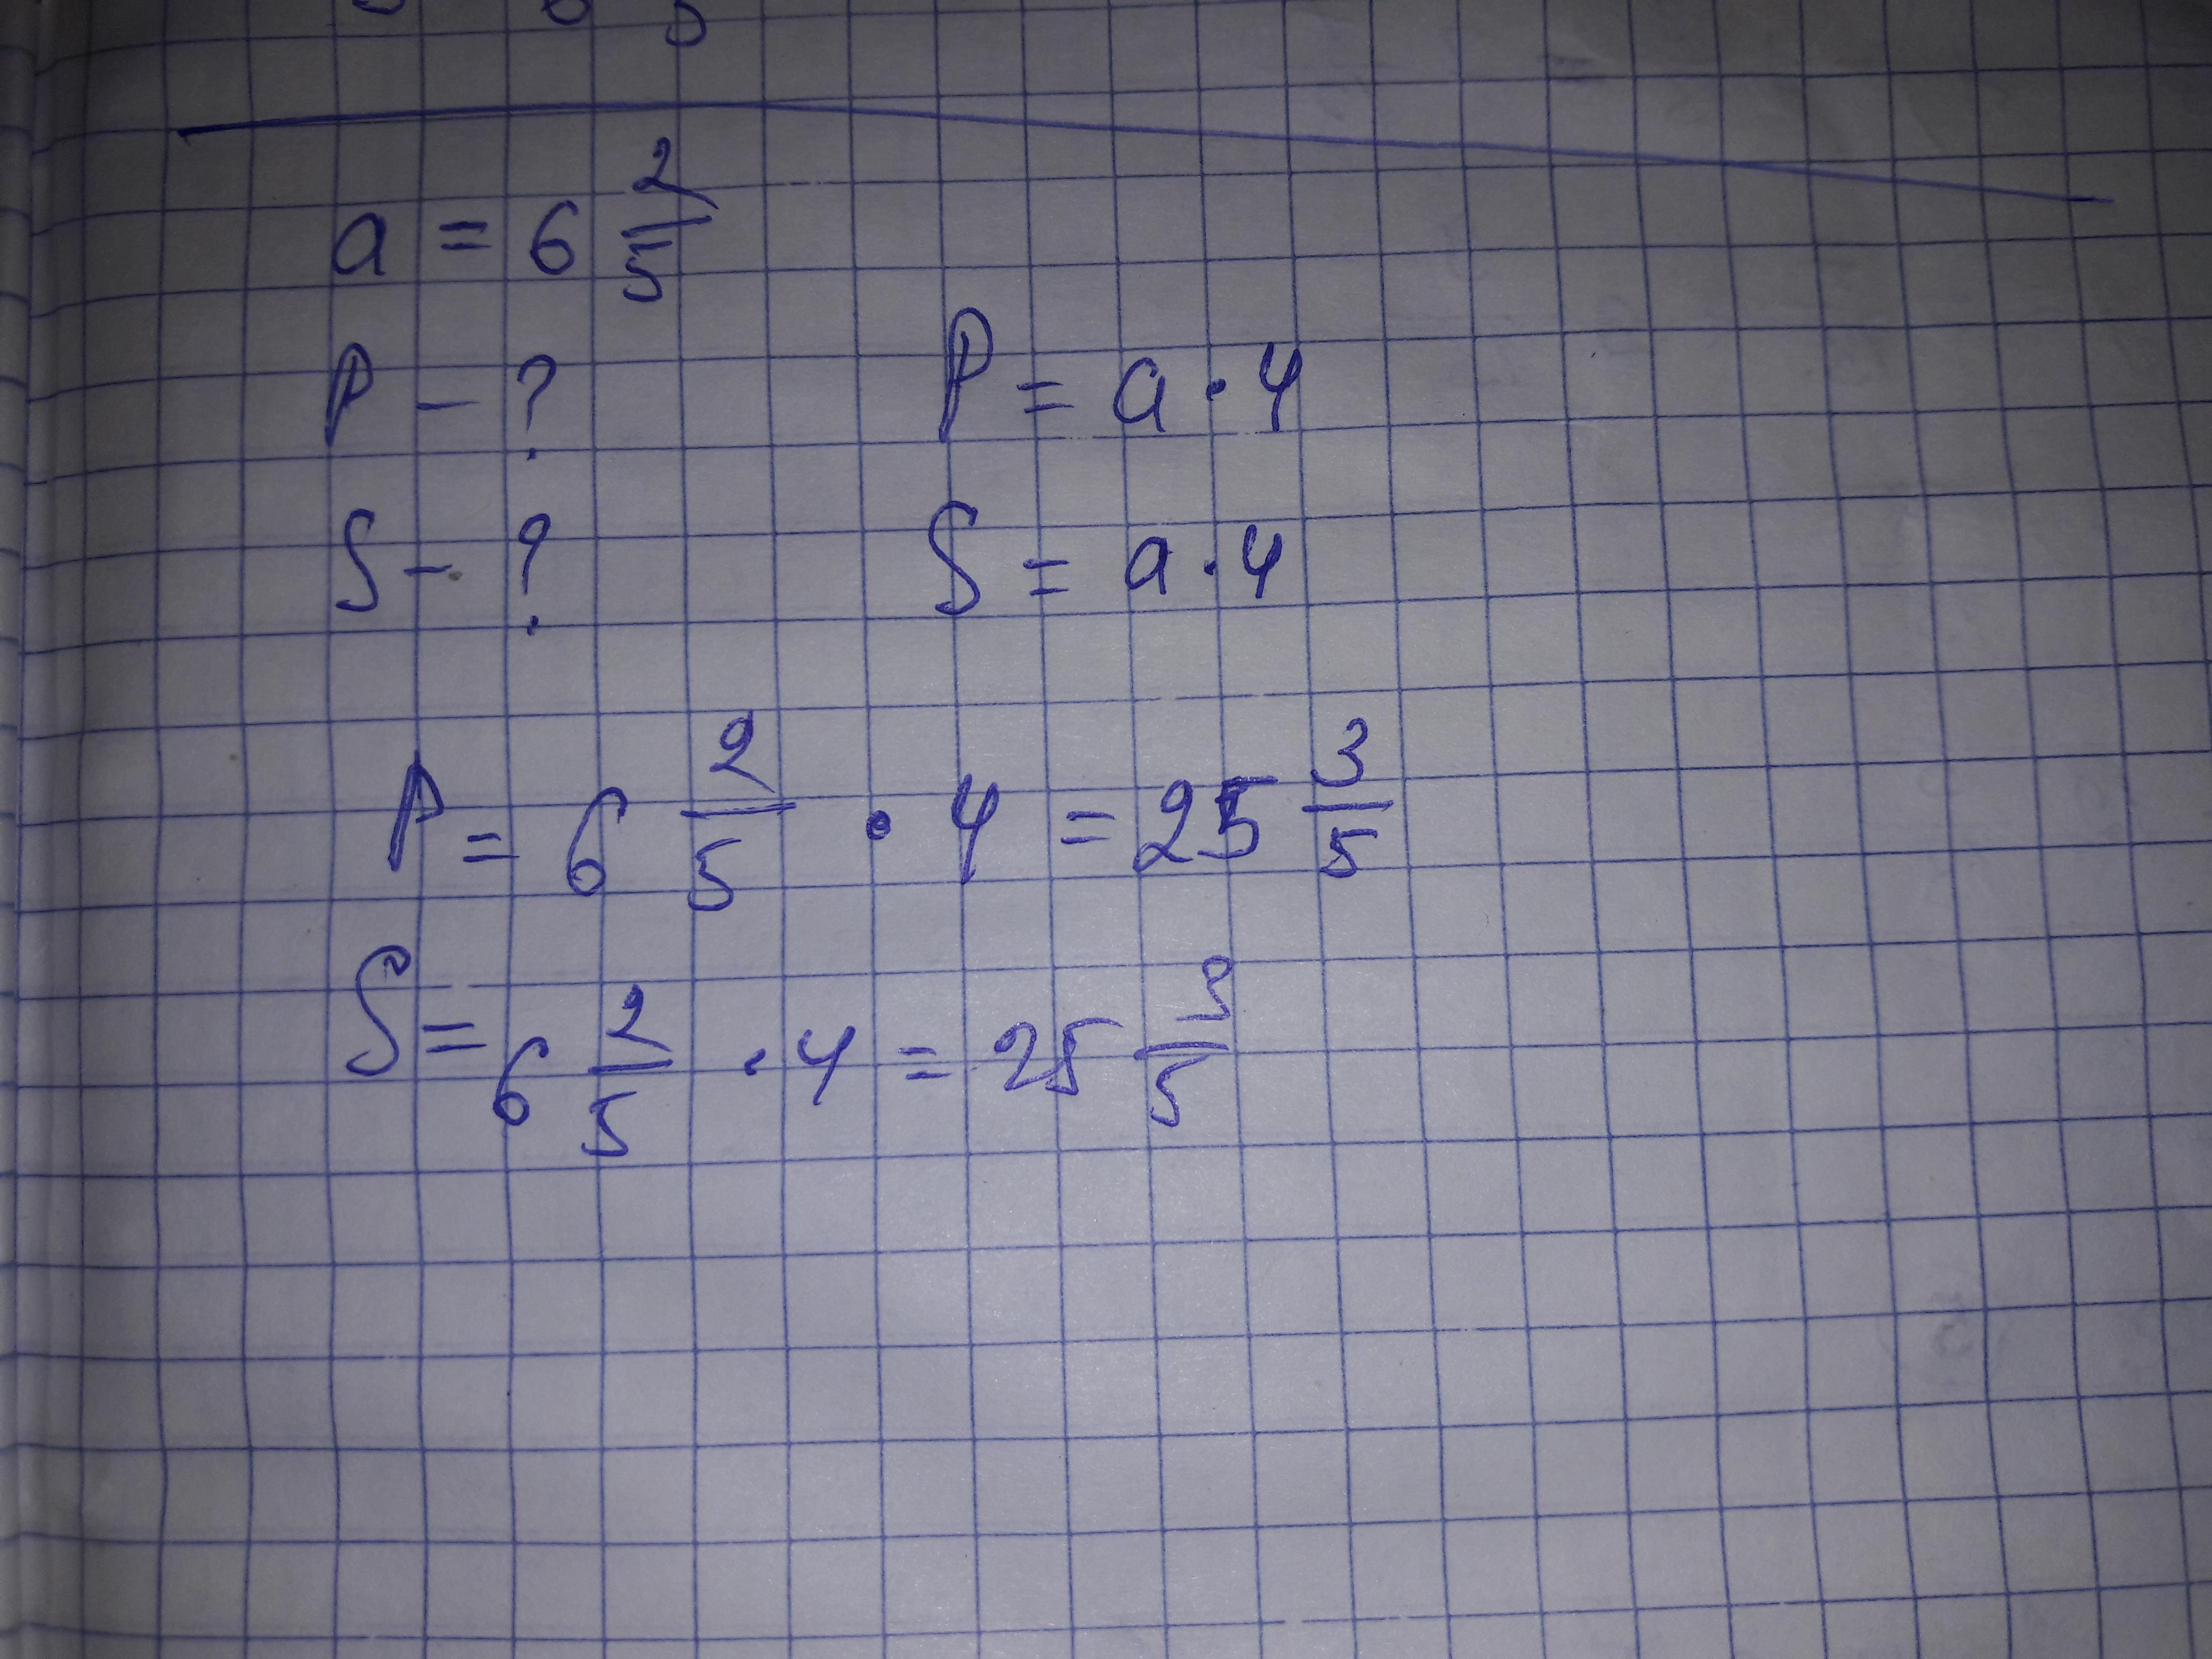 a = 6 2/5
P - ? P = a · 4
S - ? S = a · 4
P = 6 2/5 · 4 = 25 3/5
S = 6 2/5 · 4 = 25 3/5